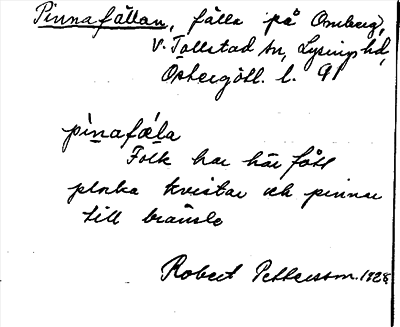 Pinnafällan, fälla på Omberg,
V. Tollstad sn, Lysings hd,
Östergötl. l. 91
pi̱nafǽ̱la
Folk har här fått
plocka kvistar och pinnar
till bränsle
Robert Pettersson. 1928